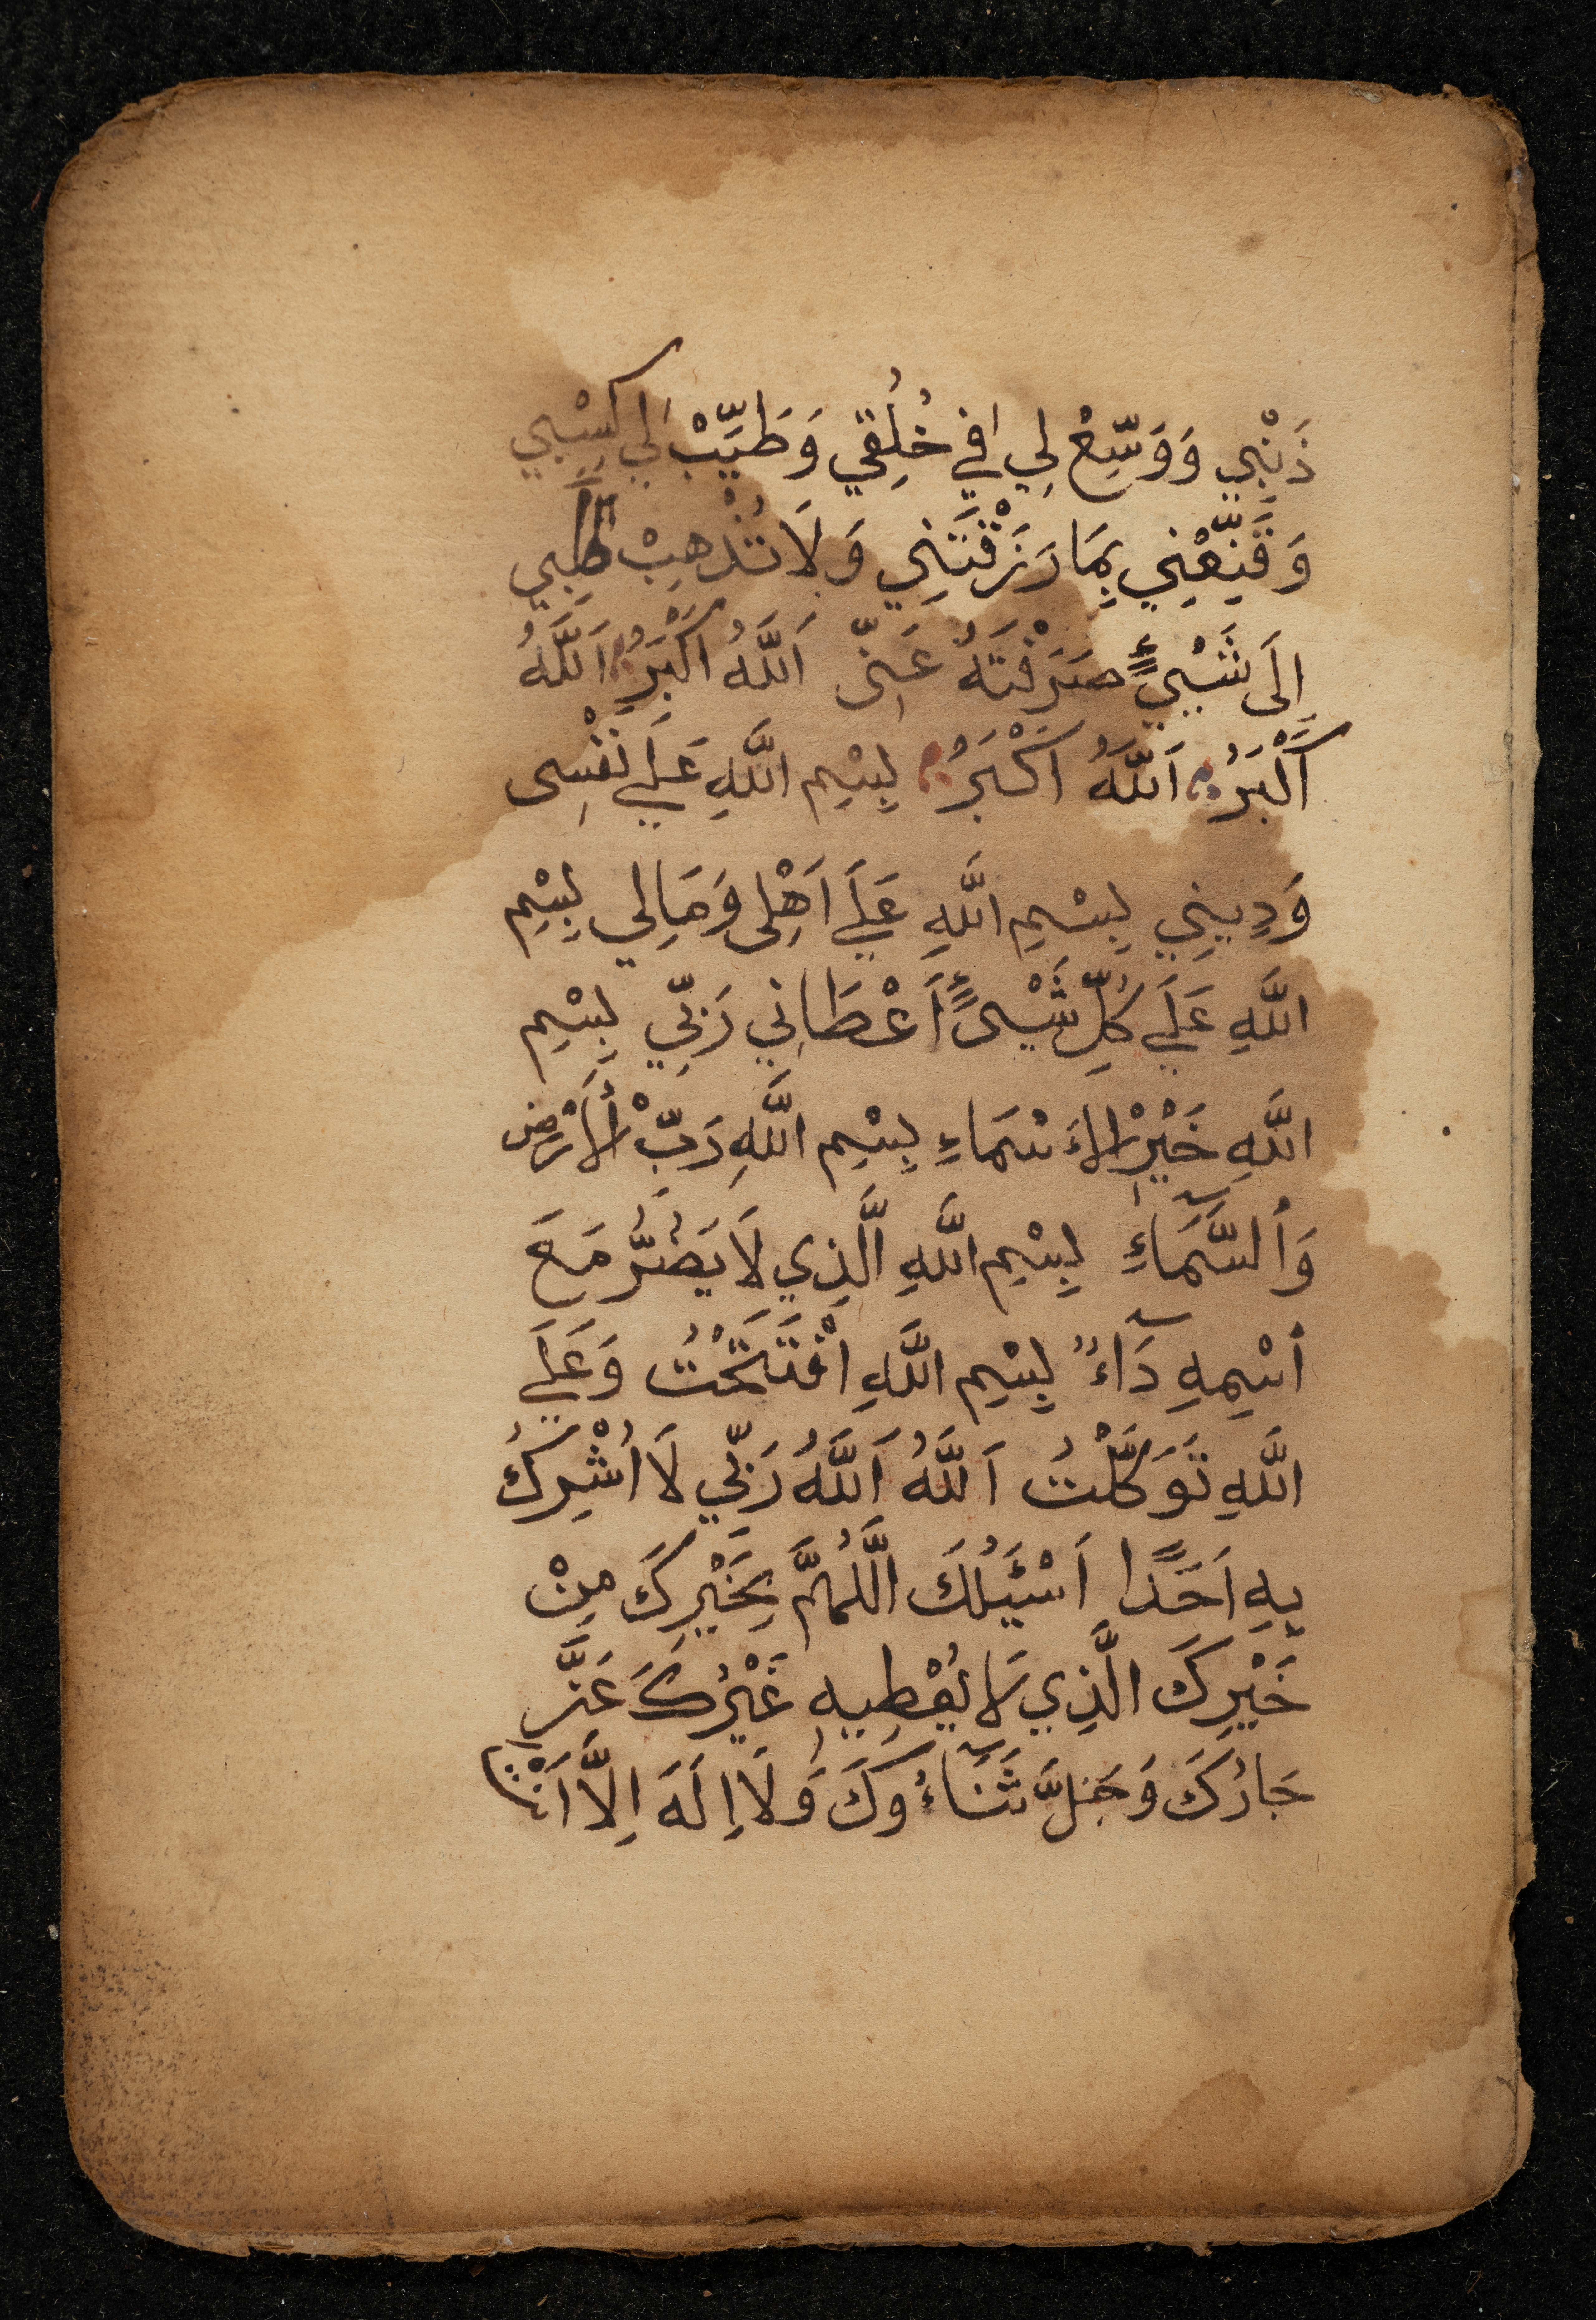 ذَنْبِي وَوَسِّعْ لِي فِي خُلُقِي وَطَيِّبْ لِي كَسْبِي
وَقَنِّعْنِي بِمَا رَزَقْتَنِي وَلَا تُذْهِبْ طَلَبِي
اِلَى شَيْءٍ صَرَفْتَهُ عَنِّى اَللَّهُ اَكْبَرُ اَللَّهُ
اَكْبَرُ اَللَّهُ اَكْبَرُ بِسْمِ اللَّهِ عَلَى نَفْسِى
وَدِينِي بِسْمِ اللَّهِ عَلَى اَهْلِى وَمَالِي بِسْمِ
اللَّهِ عَلَى كُلِّ شَيْءٍ اَعْطَانِي رَبِّي بِسْمِ
اللَّهِ خَيْرِ الْاَسْمَاءِ بِسْمِ اللَّهِ رَبِّ الْأَرْضِ
وَالسَّمَآءِ بِسْمِ اللَّهِ الَّذِي لَا يَضُرُّ مَعَ
اسْمِهِ دَآءٌ بِسْمِ اللَّهِ افْتَتَحْتُ وَعَلَى
اللَّهِ تَوَكَّلْتُ اَللَّهُ اَللَّهُ رَبِّي لَا اُشْرِكُ
بِهِ اَحَدًا اَسْئَلُكَ اللَّهُمَّ بِخَيْرِكَ مِنْ
خَيْرِكَ الَّذِي لَا يُعْطِيهِ غَيْرُكَ عَزَّ
جَارُكَ وَجَلَّ ثَنَآءُوكَ وَلَا اِلَهَ اِلَّا اَنْتَ